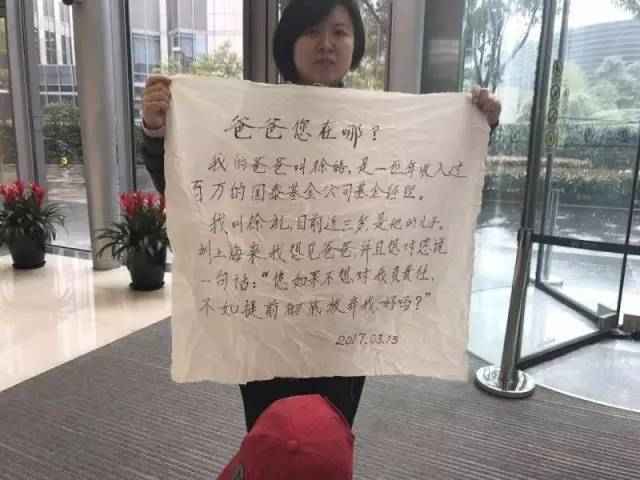 爸爸您在哪？
我的爸爸叫徐皓，是一位年收入过
百万的国泰基金公司基金经理。
我叫徐礼，目前近三岁是他的儿子。
到上海来，我想见爸爸，并且想对您说
一句话：“您如果不想对我负责任，
不如提前彻底放弃我，好吗？”
2017.03.13